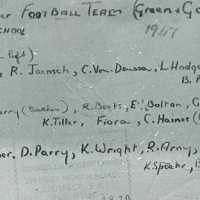 er FOOTBALL TEAM (Green & Go
SCHOOL
1947
left)
, R. Jaensch, C. Von. L. Hodge
B. P
arry (Barker), R. Boots, E. Bolton, G
K. Tiller, Fiora, C. Haines (
er, D. Parry, K. Wright, R. Army,
K. Spoehr, B